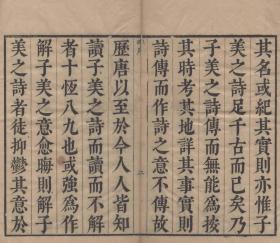 其名或紀其實則亦惟子
美之詩足千古而已矣乃
子美之詩傳而無能為按
其時考其地詳其事實則
詩傳而作詩之意不傳故
二
歷唐以至於今人人皆知
讀子美之詩而讀而不解
者十恆八九也或強為作
解子美之意愈晦則解子
美之詩者徒抑鬱其意於